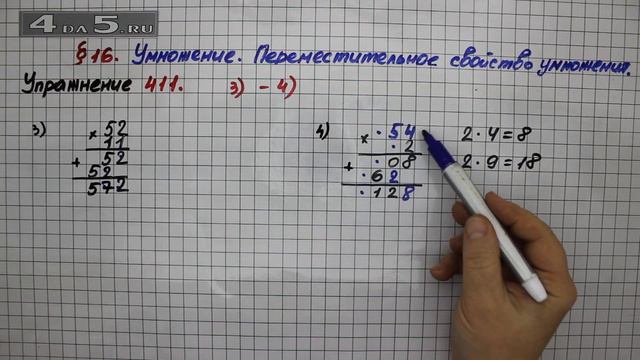 4DA5.RU
§ 16. Умножение. Переместительное свойство умножения.
Упражнение 411. 3) - 4)
3)
× 52
11
+ 52
52
572
4)
× · 54
· 2
+ · 08
· 62
· 128
2 · 4 = 8
2 · 9 = 18